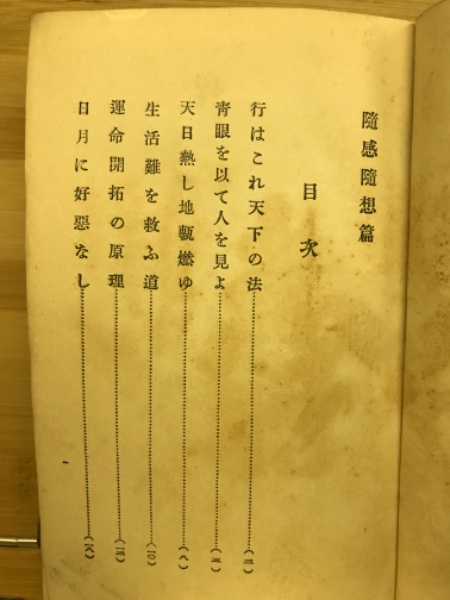 隨感隨想篇
目次
行はこれ天下の法………(三)
靑眼を以て人を見よ………(五)
天日熱し地甎燃ゆ………(八)
生活難を救ふ道………(一〇)
運命開拓の原理………(一三)
日月に好惡なし………(一六)